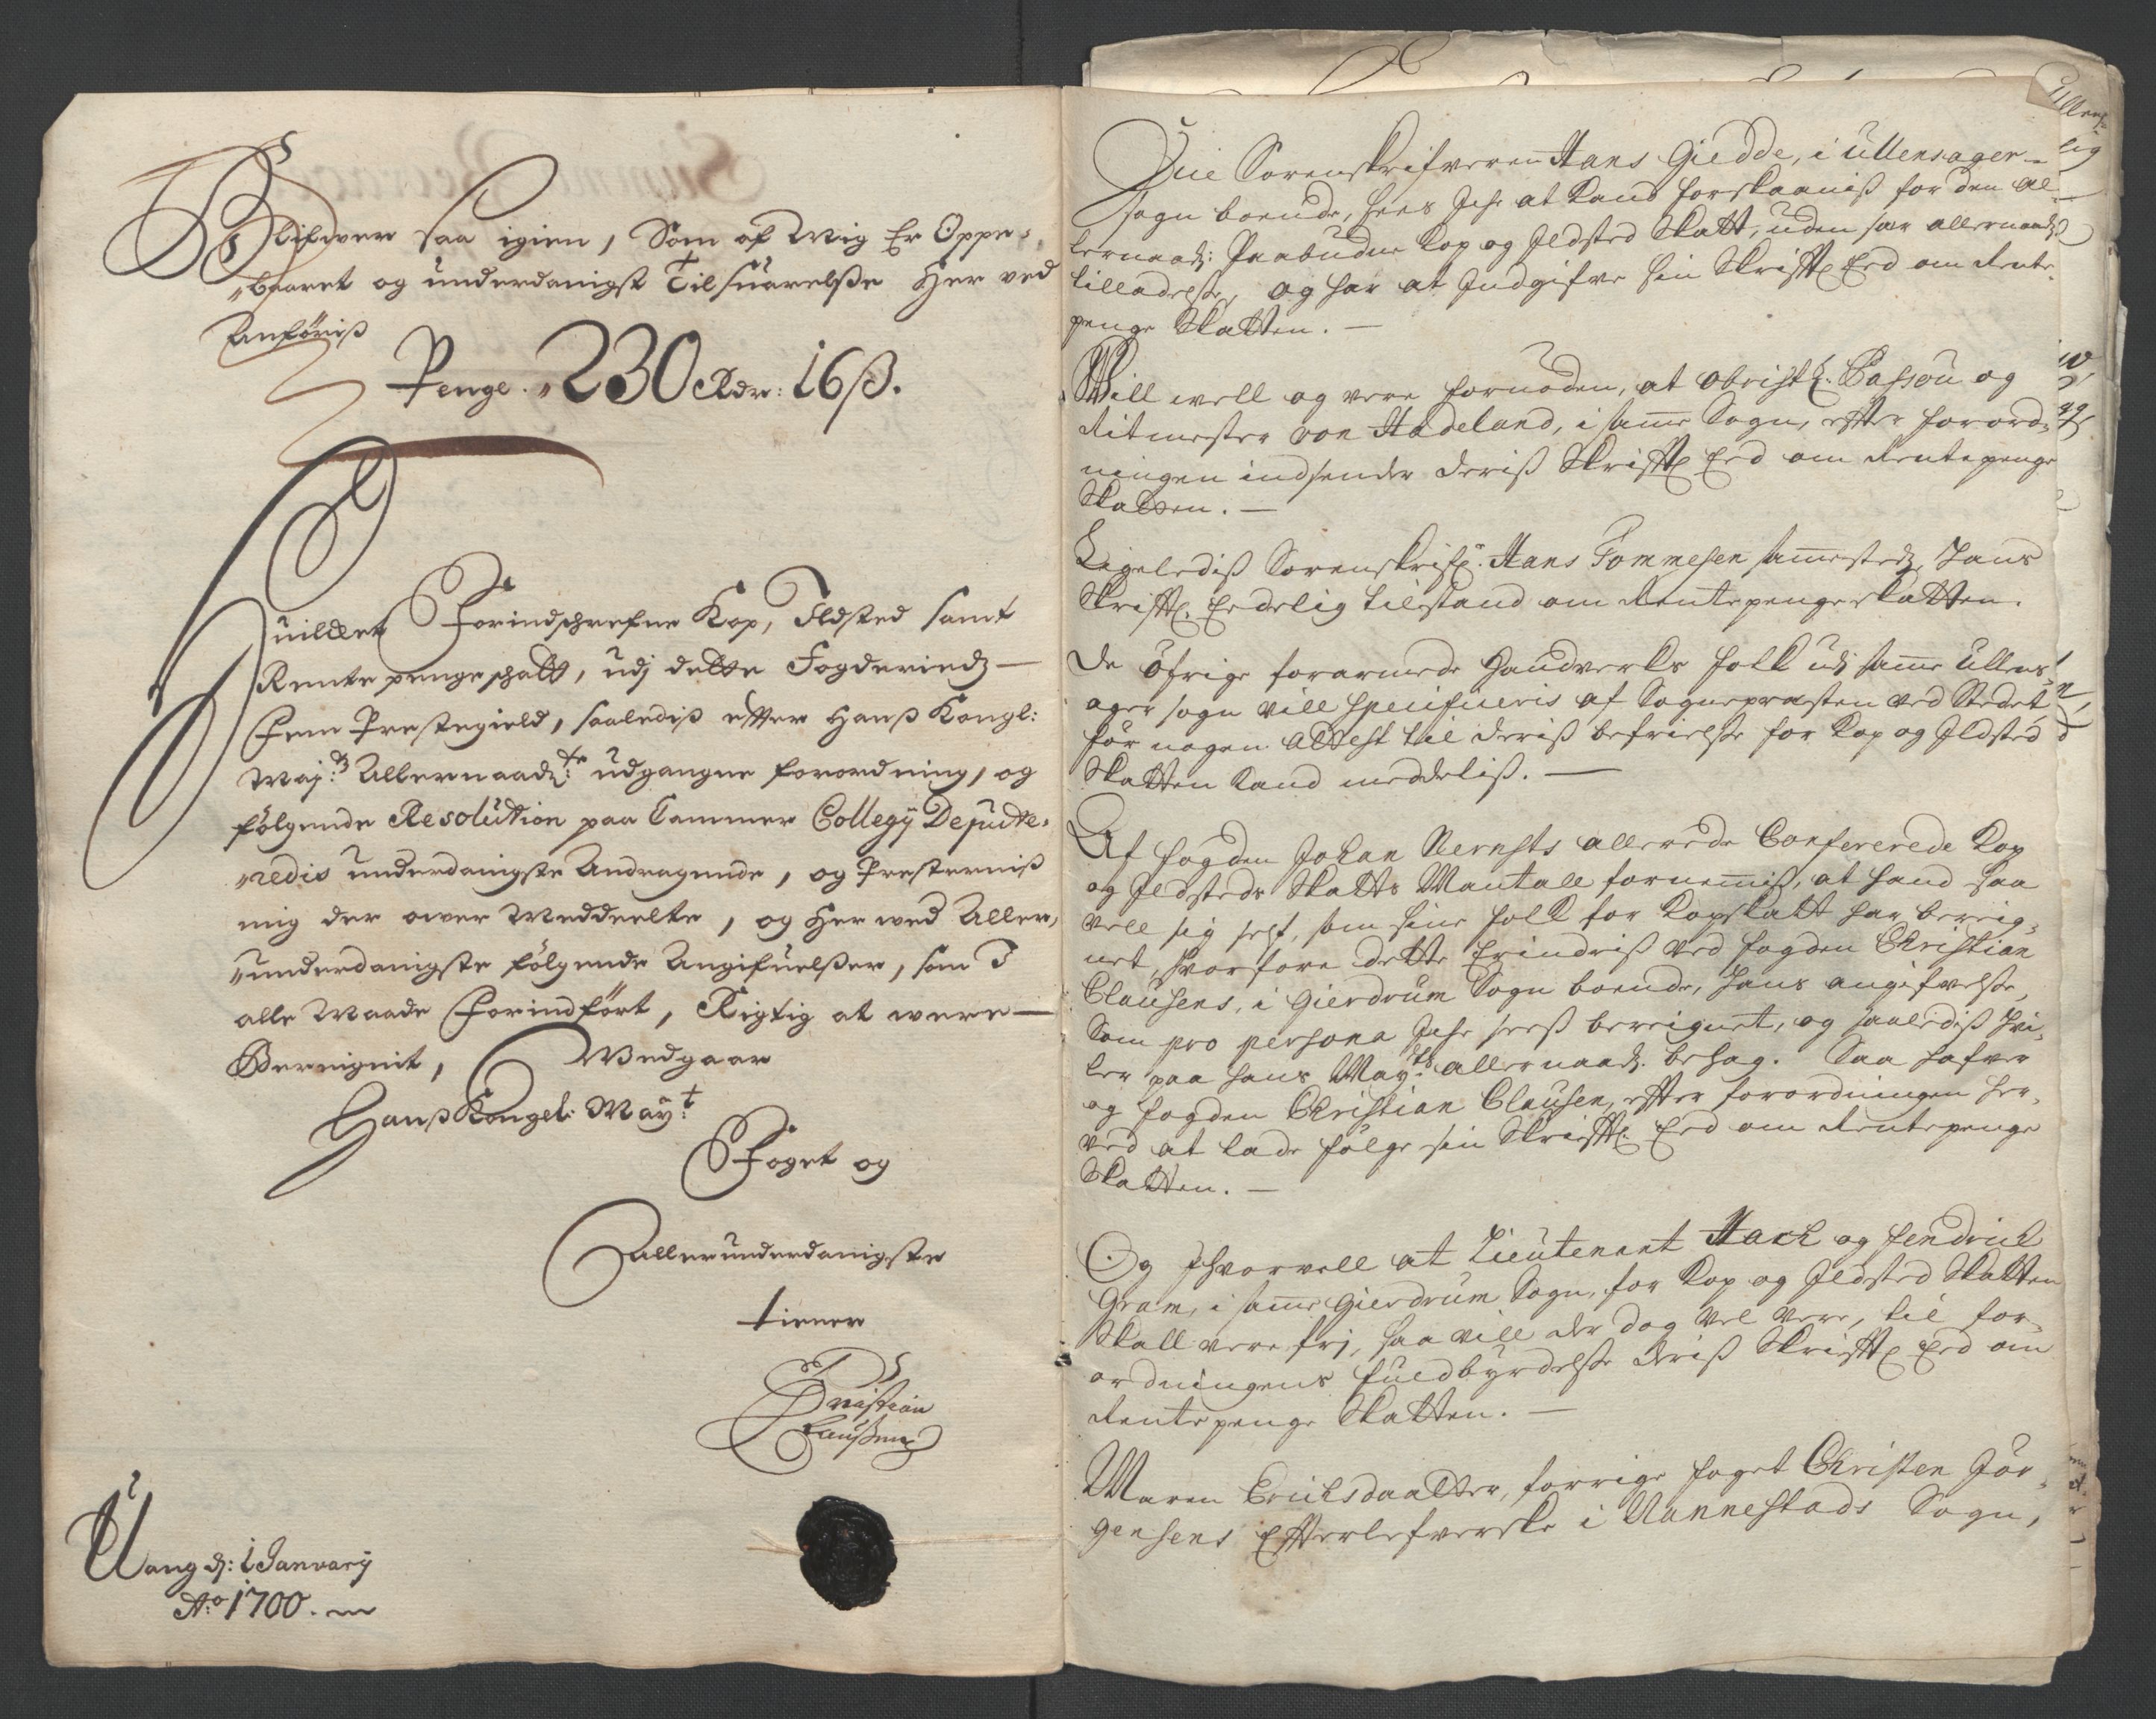 Blifwer saa igien, Som af Mig Er Oppe„
„baaret og underdanigst Tilsuarelsse Her ved
Anføris
Penge. „230 Rdr: 16 ß.
Huilcket Forindschrefne Kop, Ildsted samt
Rentepengeschatt, udj dette Fogderiedz —
Fem Prestegield, saaledis effter Hanß Kongl:
May:tz Allernaadz:te udgangne forordning, og
følgende Resolution paa Cammer Collegy Depute„
„redis underdanigste Andragende, og Presternis
mig der ower Meddeelte, og Her wed Aller„
„underdanigste følgende Angifuelsser, som I
alle Maade Forindført, Rigtig at were —
Beregnit, Wedgaar
Hanß Kongel: May:t
Foget og
allerunderdanigste
tiener
Christian
Claußen
Wang d: 1 January
Ao 1700.
Sorenskrifveren Hans Giedde, i Ullensager —
sogn boende, sees Jche at kand forskaanis for den al„
lernaad: Paabudne Kop og Ildsted Skatt, uden sær allernaadz
tilladelsse, og har at Indgifve sin Skrifftl Eed om Rente„
penge Skatten. —
Will well og vere fornøden, at Obrist L. Cassou og
Ritmester von Hadeland, i samme Sogn, effter forord„
ningen indsender deris Skrifftl Eed om Rentepenge
Skatten. —
Ligeledis Sorenskrifr. Hans Tommesen sammestedz, hans
Skrifftl. Eedelig tilstand om Rentepenge skatten.
De öfrige forarmede Handverks folk udj samme Ullens„
ager sogn vill specificeris af Sognepræsten ved Stedet
før nogen Attest til deris befrielsse for Kop og Ildsted
Skatten kand meddelis. —
Af fogden Johan Nernsts allerede Confererede Kop
og Ildsteds Skatts Mantall fornemmis, at hand saa
vell sig self, som sine folk for Kopskatt har bereig„
net, hvorfore dette Erindris ved fogden Christian
Clausens, i Gierdrum Sogn boende, hans angifvelsse,
Som pro persona Jche sees bereignet, og saaledis hvi„
ler paa hans May:ts allernaadz. behag. Saa hafver
og fogden Christian Clausen, effter forordningen her„
ved at lade følge sin Skrifftl. Eed om Rentepenge
Skatten. —
Og Ihvorvell at Lieutenant Hack og Hendrich
Gram, i samme Gierdrum Sogn, for Kop og Ildsted Skatten
Skall vere frj, saa vill der dog vel vere, til for„
ordningens fuldbyrdelsse deris Skrifftl Eed om
Rentepenge Skatten. —
Maren Erichsdaatter, forrige foget Christen Jør„
gensens Efterlefverske i Nannestads Sogn,